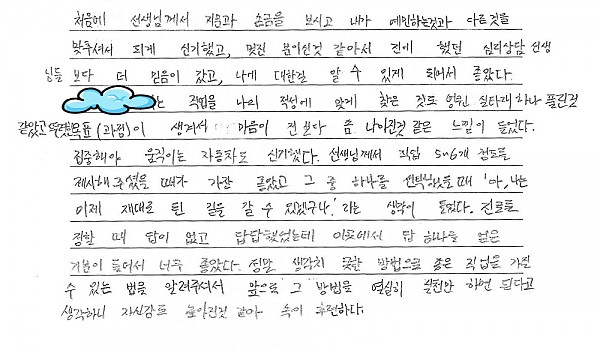 처음에 선생님께서 지문과 손금을 보시고 내가 예민하는것과 다른것들
맞추셔서 되게 신기했고, 멋진 분이신것 같아서 전에 했던 심리상담 선생
님들 보다 더 믿음이 갔고, 나에 대한걸 알 수 있게 되어서 좋았다.
는 직업을 나의 적성에 맞게 찾은 것도 엉킨 실타래 하나 풀린것
같았고 목표(과정)이 생겨서 마음이 전보다 좀 나아진것 같은 느낌이 들었다.
집중해야 움직이는 자동차도 신기했다. 선생님께서 직업 5~6개 정도를
제시해 주셨을 때가 가장 좋았고 그 중 하나를 선택했을때 '아, 나는
이제 재대로 된 길을 갈 수 있겠구나.' 라는 생각이 들었다. 진로를
정할 때 답이 없고 답답했었는데 이곳에서 답 하나를 얻은
기분이 들어서 너무 좋았다. 정말 생각치 못한 방법으로 좋은 직업을 가질
수 있는 법을 알려주셔서 앞으로 그 방법을 열심히 실천만 하면 된다고
생각하니 자신감도 높아진것 같아 속이 후련하다.